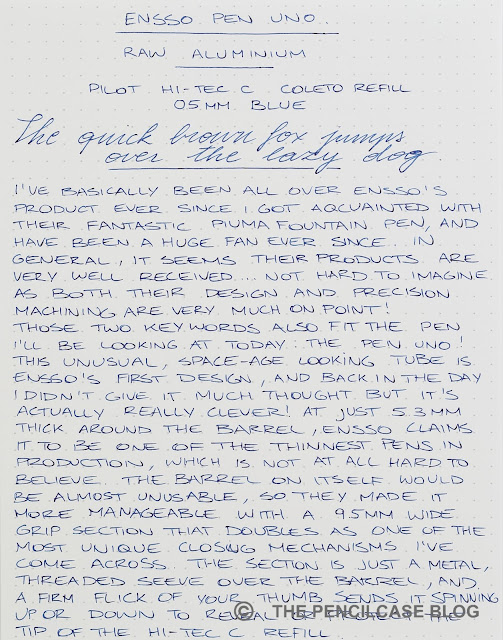 ENSSO PEN UNO..
RAW ALUMINIUM
PILOT HI-TEC C COLETO REFILL
05MM. BLUE
The quick brown fox jumps
over the lazy dog.
I'VE BASICALLY BEEN ALL OVER ENSSO'S
PRODUCT EVER SINCE I GOT AQCUAINTED WITH
THEIR FANTASTIC PIUMA FOUNTAIN PEN, AND
HAVE BEEN A HUGE FAN EVER SINCE. IN
GENERAL, IT SEEMS THEIR PRODUCTS ARE
VERY WELL RECEIVED... NOT HARD TO IMAGINE
AS BOTH THEIR DESIGN AND PRECISION
MACHINING ARE VERY MUCH ON POINT!
THOSE TWO KEYWORDS ALSO FIT THE PEN
I'LL BE LOOKING AT TODAY: THE PEN UNO!
THIS UNUSUAL, SPACE-AGE LOOKING TUBE IS
ENSSO'S FIRST DESIGN, AND BACK IN THE DAY
I DIDN'T GIVE IT MUCH THOUGHT. BUT IT'S
ACTUALLY REALLY CLEVER! AT JUST 5.3MM
THICK AROUND THE BARREL, ENSSO CLAIMS
IT TO BE ONE OF THE THINNEST PENS IN
PRODUCTION, WHICH IS NOT AT ALL HARD TO
BELIEVE. THE BARREL ON ITSELF WOULD
BE ALMOST UNUSABLE, SO THEY MADE IT
MORE MANAGEABLE WITH A 9.5MM WIDE
GRIP SECTION THAT DOUBLES AS ONE OF THE
MOST UNIQUE CLOSING MECHANISMS I'VE
COME ACROSS. THE SECTION IS JUST A METAL,
THREADED SEEVE OVER THE BARREL, AND
A FIRM FLICK OF YOUR THUMB SENDS IT SPINNING
UP OR DOWN TO REVEAL OR PROTECT THE
TIP OF THE HI-TEC C REFILL.
© THE PENCILCASE BLOG